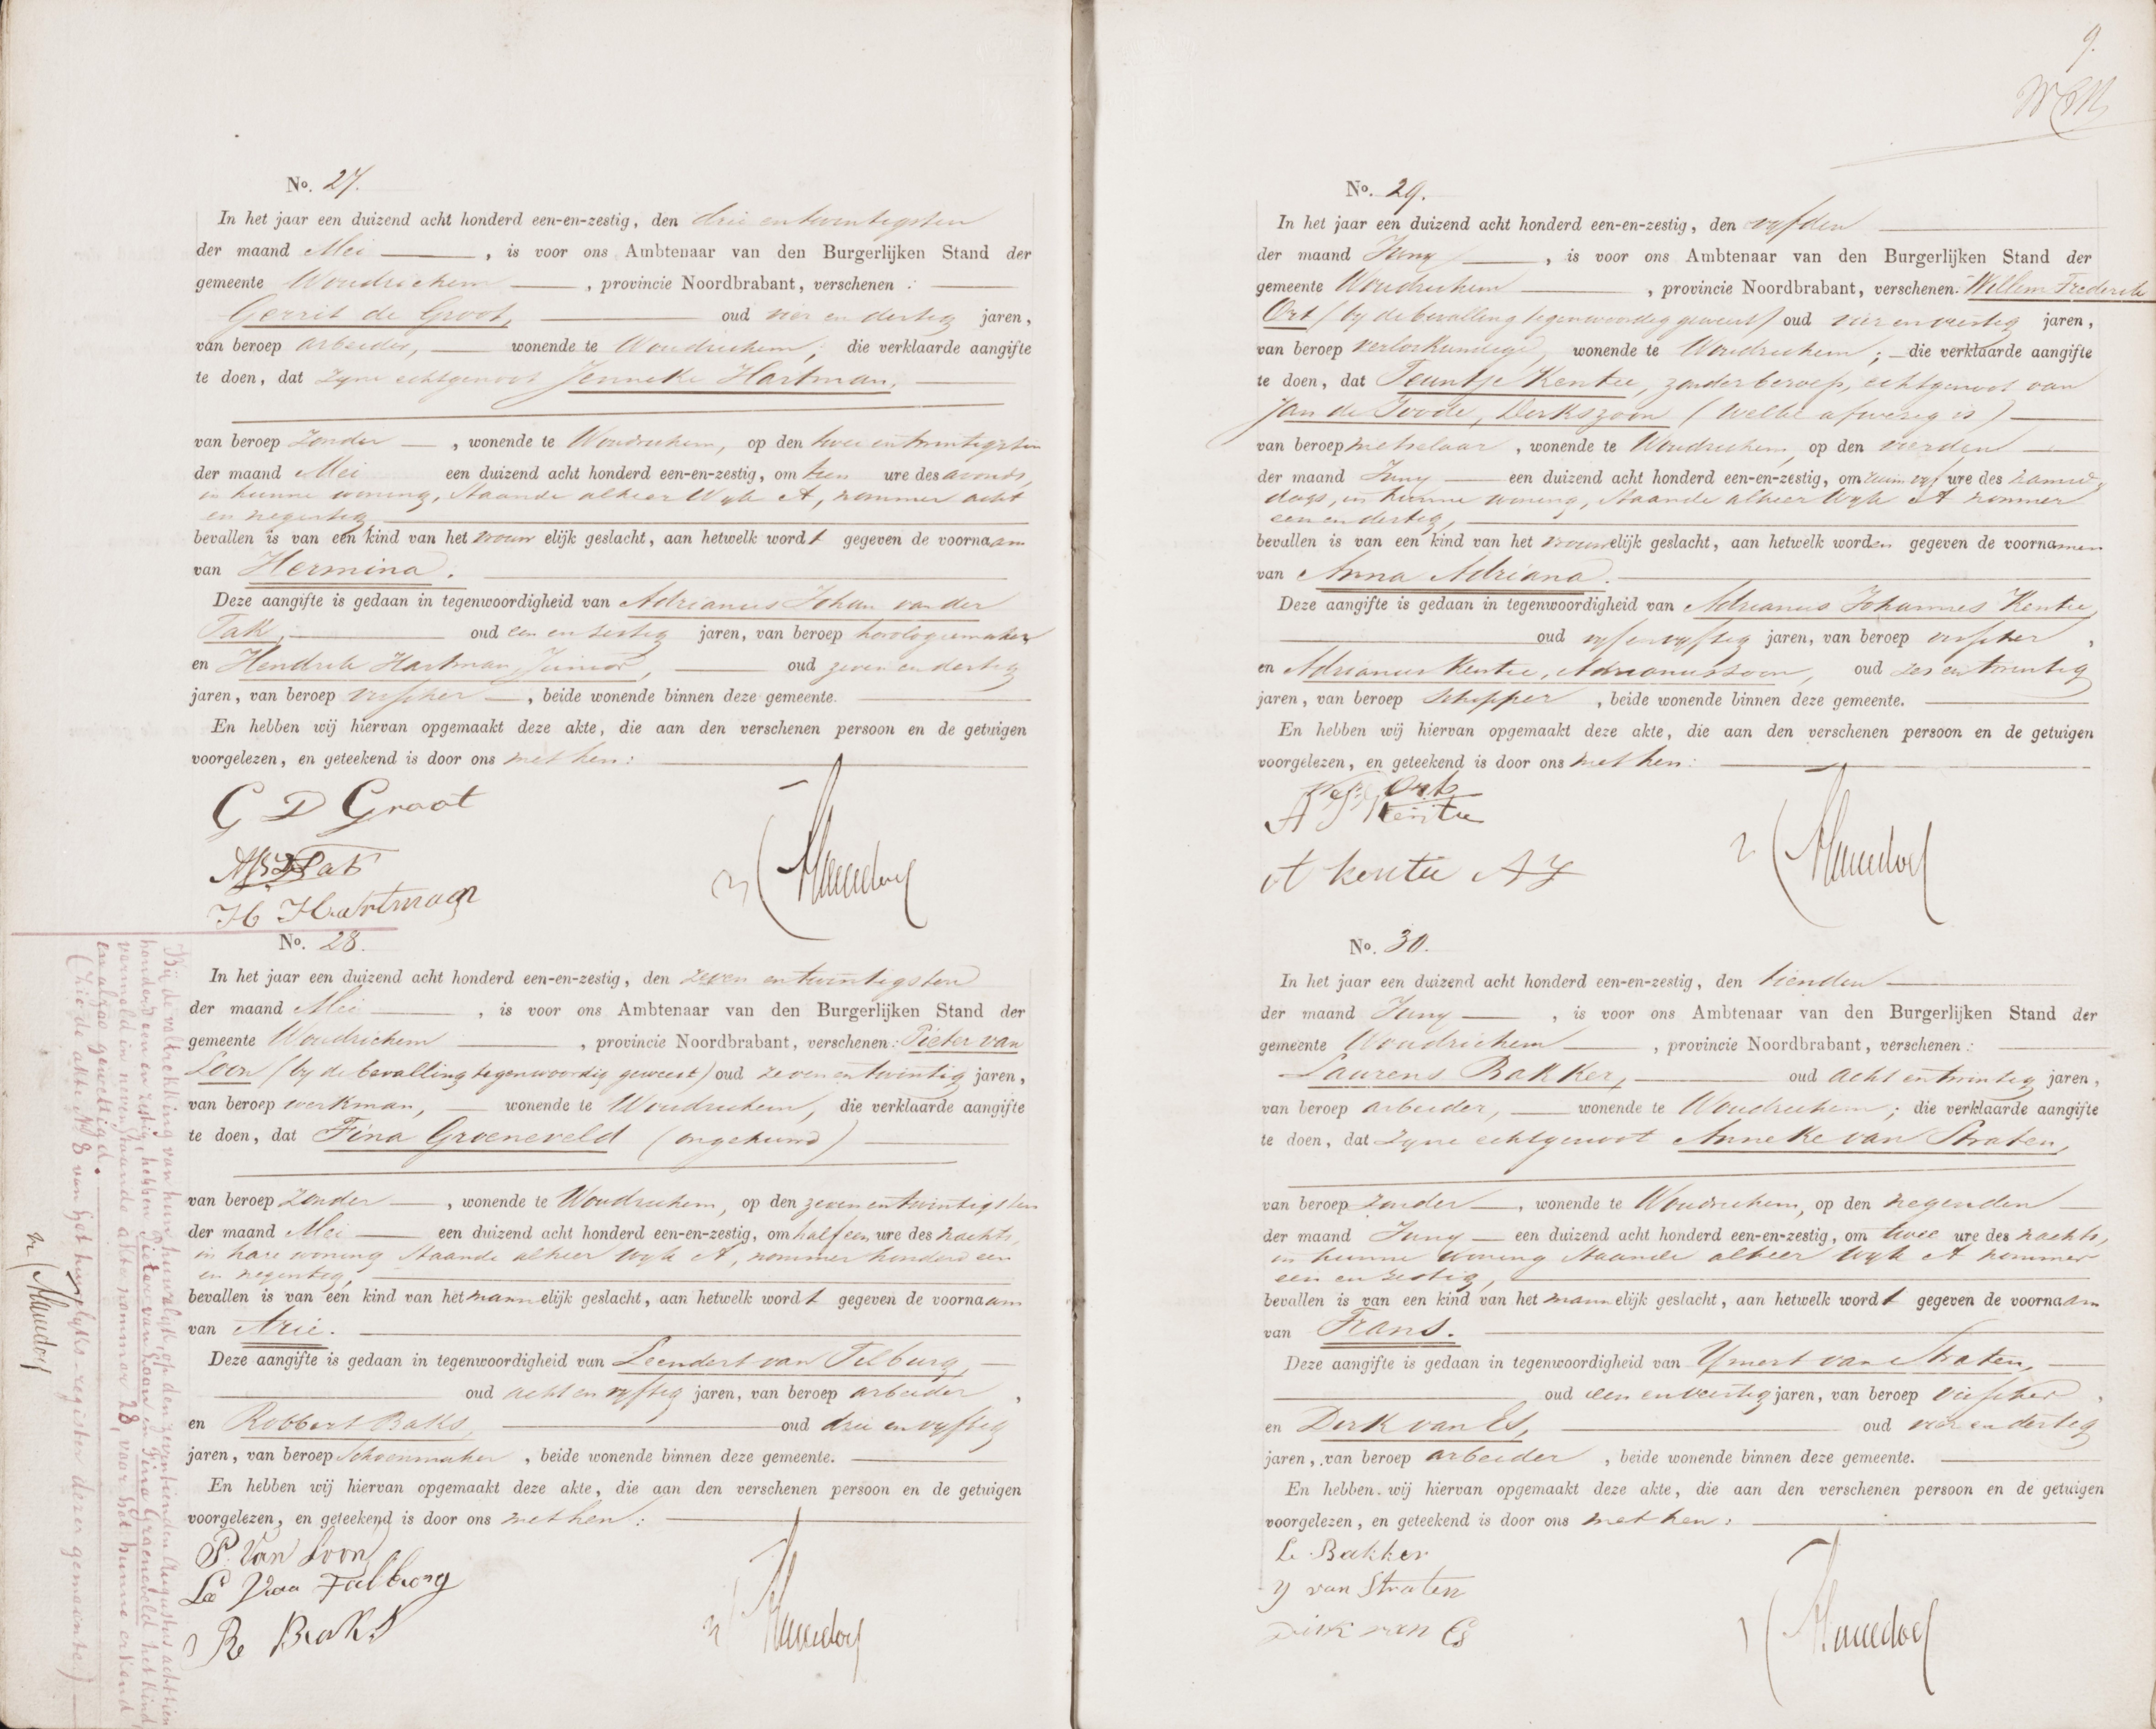 No. 27.
In het jaar een duizend acht honderd een-en-zestig, den drie entwintigsten
der maand Mei, is voor ons Ambtenaar van den Burgerlijken Stand der
gemeente Woudrichem, provincie Noordbrabant, verschenen:
Gerrit de Groot, oud vier en dertig jaren,
van beroep arbeider, wonende te Woudrichem; die verklaarde aangifte
te doen, dat zyne echtgenoot Jenneke Hartman,
van beroep zonder, wonende te Woudrichem, op den twee entwintigsten
der maand Mei een duizend acht honderd een-en-zestig, om tien ure des avonds,
in hunne woning, staande alhier Wyk A, nommer acht
en negentig
bevallen is van een kind van het vrouwelijk geslacht, aan hetwelk wordt gegeven de voornaam
van Hermina.
Deze aangifte is gedaan in tegenwoordigheid van Adrianus Johan van der
Tak, oud een en zestig jaren, van beroep horologiemaker
en Hendrik Hartman Junior, oud zeven en dertig
jaren, van beroep visscher, beide wonende binnen deze gemeente.
En hebben wij hiervan opgemaakt deze akte, die aan den verschenen persoon en de getuigen
voorgelezen, en geteekend is door ons met hen:
G D Groot
H Hartman
No. 28.
In het jaar een duizend acht honderd een-en-zestig, den zeven entwintigsten
der maand Mei, is voor ons Ambtenaar van den Burgerlijken Stand der
gemeente Woudrichem, provincie Noordbrabant, verschenen: Pieter van
Loon (by de bevalling tegenwoordig geweest) oud zeven entwintig jaren,
van beroep werkman, wonende te Woudrichem, die verklaarde aangifte
te doen, dat Fina Groeneveld (ongehuwd)
van beroep zonder, wonende te Woudrichem, op den zevenentwintigsten
der maand Mei een duizend acht honderd een-en-zestig, om half een ure des nachts,
in hare woning staande alhier wyk A, nommer honderd een
en negentig,
bevallen is van een kind van het mannelijk geslacht, aan hetwelk wordt gegeven de voornaam
van Arie.
Deze aangifte is gedaan in tegenwoordigheid van Leendert van Tilburg,
oud acht en vyftig jaren, van beroep arbeider,
en Robbert Baks, oud drie en vyftig
jaren, van beroep Schoenmaker, beide wonende binnen deze gemeente.
En hebben wij hiervan opgemaakt deze akte, die aan den verschenen persoon en de getuigen
voorgelezen, en geteekend is door ons met hen:
P. Van Loon
Le Van Tilborg
R Baks
Bij de voltrekking van hun huwelyk, op den zeventienden Augustus achttien
honderd een en zestig, hebben Pieter van Loon en Fina Groeneveld het kind,
vermeld in nevenstaande akte nommer 28, voor het hunne erkend
en alzoo gewettigd.
(Zie de akte No 8 van het huwelyks-register dezer gemeente.)
9.
No. 29.
In het jaar een duizend acht honderd een-en-zestig, den vyfden
der maand Juny, is voor ons Ambtenaar van den Burgerlijken Stand der
gemeente Woudrichem, provincie Noordbrabant, verschenen: Willem Frederik
Ort (by de bevalling tegenwoordig geweest) oud vier en veertig jaren,
van beroep verloskundige, wonende te Woudrichem; die verklaarde aangifte
te doen, dat Teuntje Kentie, zonder beroep, echtgenoot van
Jan de Joode, Dirkszoon (welke afwezig is)
van beroep metselaar, wonende te Woudrichem, op den vierden
der maand Juny een duizend acht honderd een-en-zestig, om ruim vyf ure des namid
dags, in hunne woning, staande alhier Wyk A nommer
een en dertig,
bevallen is van een kind van het vrouwelijk geslacht, aan hetwelk worden gegeven de voornamen
van Anna Adriana.
Deze aangifte is gedaan in tegenwoordigheid van Adrianus Johannes Kentie,
oud vyf en vyftig jaren, van beroep visscher,
en Adrianus Kentie, Adrianuszoon, oud zes entwintig
jaren, van beroep Schipper, beide wonende binnen deze gemeente.
En hebben wij hiervan opgemaakt deze akte, die aan den verschenen persoon en de getuigen
voorgelezen, en geteekend is door ons met hen:
Ort
A J Kentie
A kentie AZ
No. 30.
In het jaar een duizend acht honderd een-en-zestig, den tienden
der maand Juny, is voor ons Ambtenaar van den Burgerlijken Stand der
gemeente Woudrichem, provincie Noordbrabant, verschenen:
Laurens Bakker, oud acht entwintig jaren,
van beroep arbeider, wonende te Woudrichem; die verklaarde aangifte
te doen, dat zyne echtgenoot Anneke van Straten,
van beroep zonder, wonende te Woudrichem, op den negenden
der maand Juny een duizend acht honderd een-en-zestig, om twee ure des nachts,
in hunne woning staande alhier wyk A nommer
een en zestig,
bevallen is van een kind van het mannelijk geslacht, aan hetwelk wordt gegeven de voornaam
van Frans.
Deze aangifte is gedaan in tegenwoordigheid van Ymert van Straten,
oud een en veertig jaren, van beroep visscher,
en Dirk van Es, oud vier en dertig
jaren, van beroep arbeider, beide wonende binnen deze gemeente.
En hebben wij hiervan opgemaakt deze akte, die aan den verschenen persoon en de getuigen
voorgelezen, en geteekend is door ons met hen:
L. Bakker
y van Straten
Dirk van Es